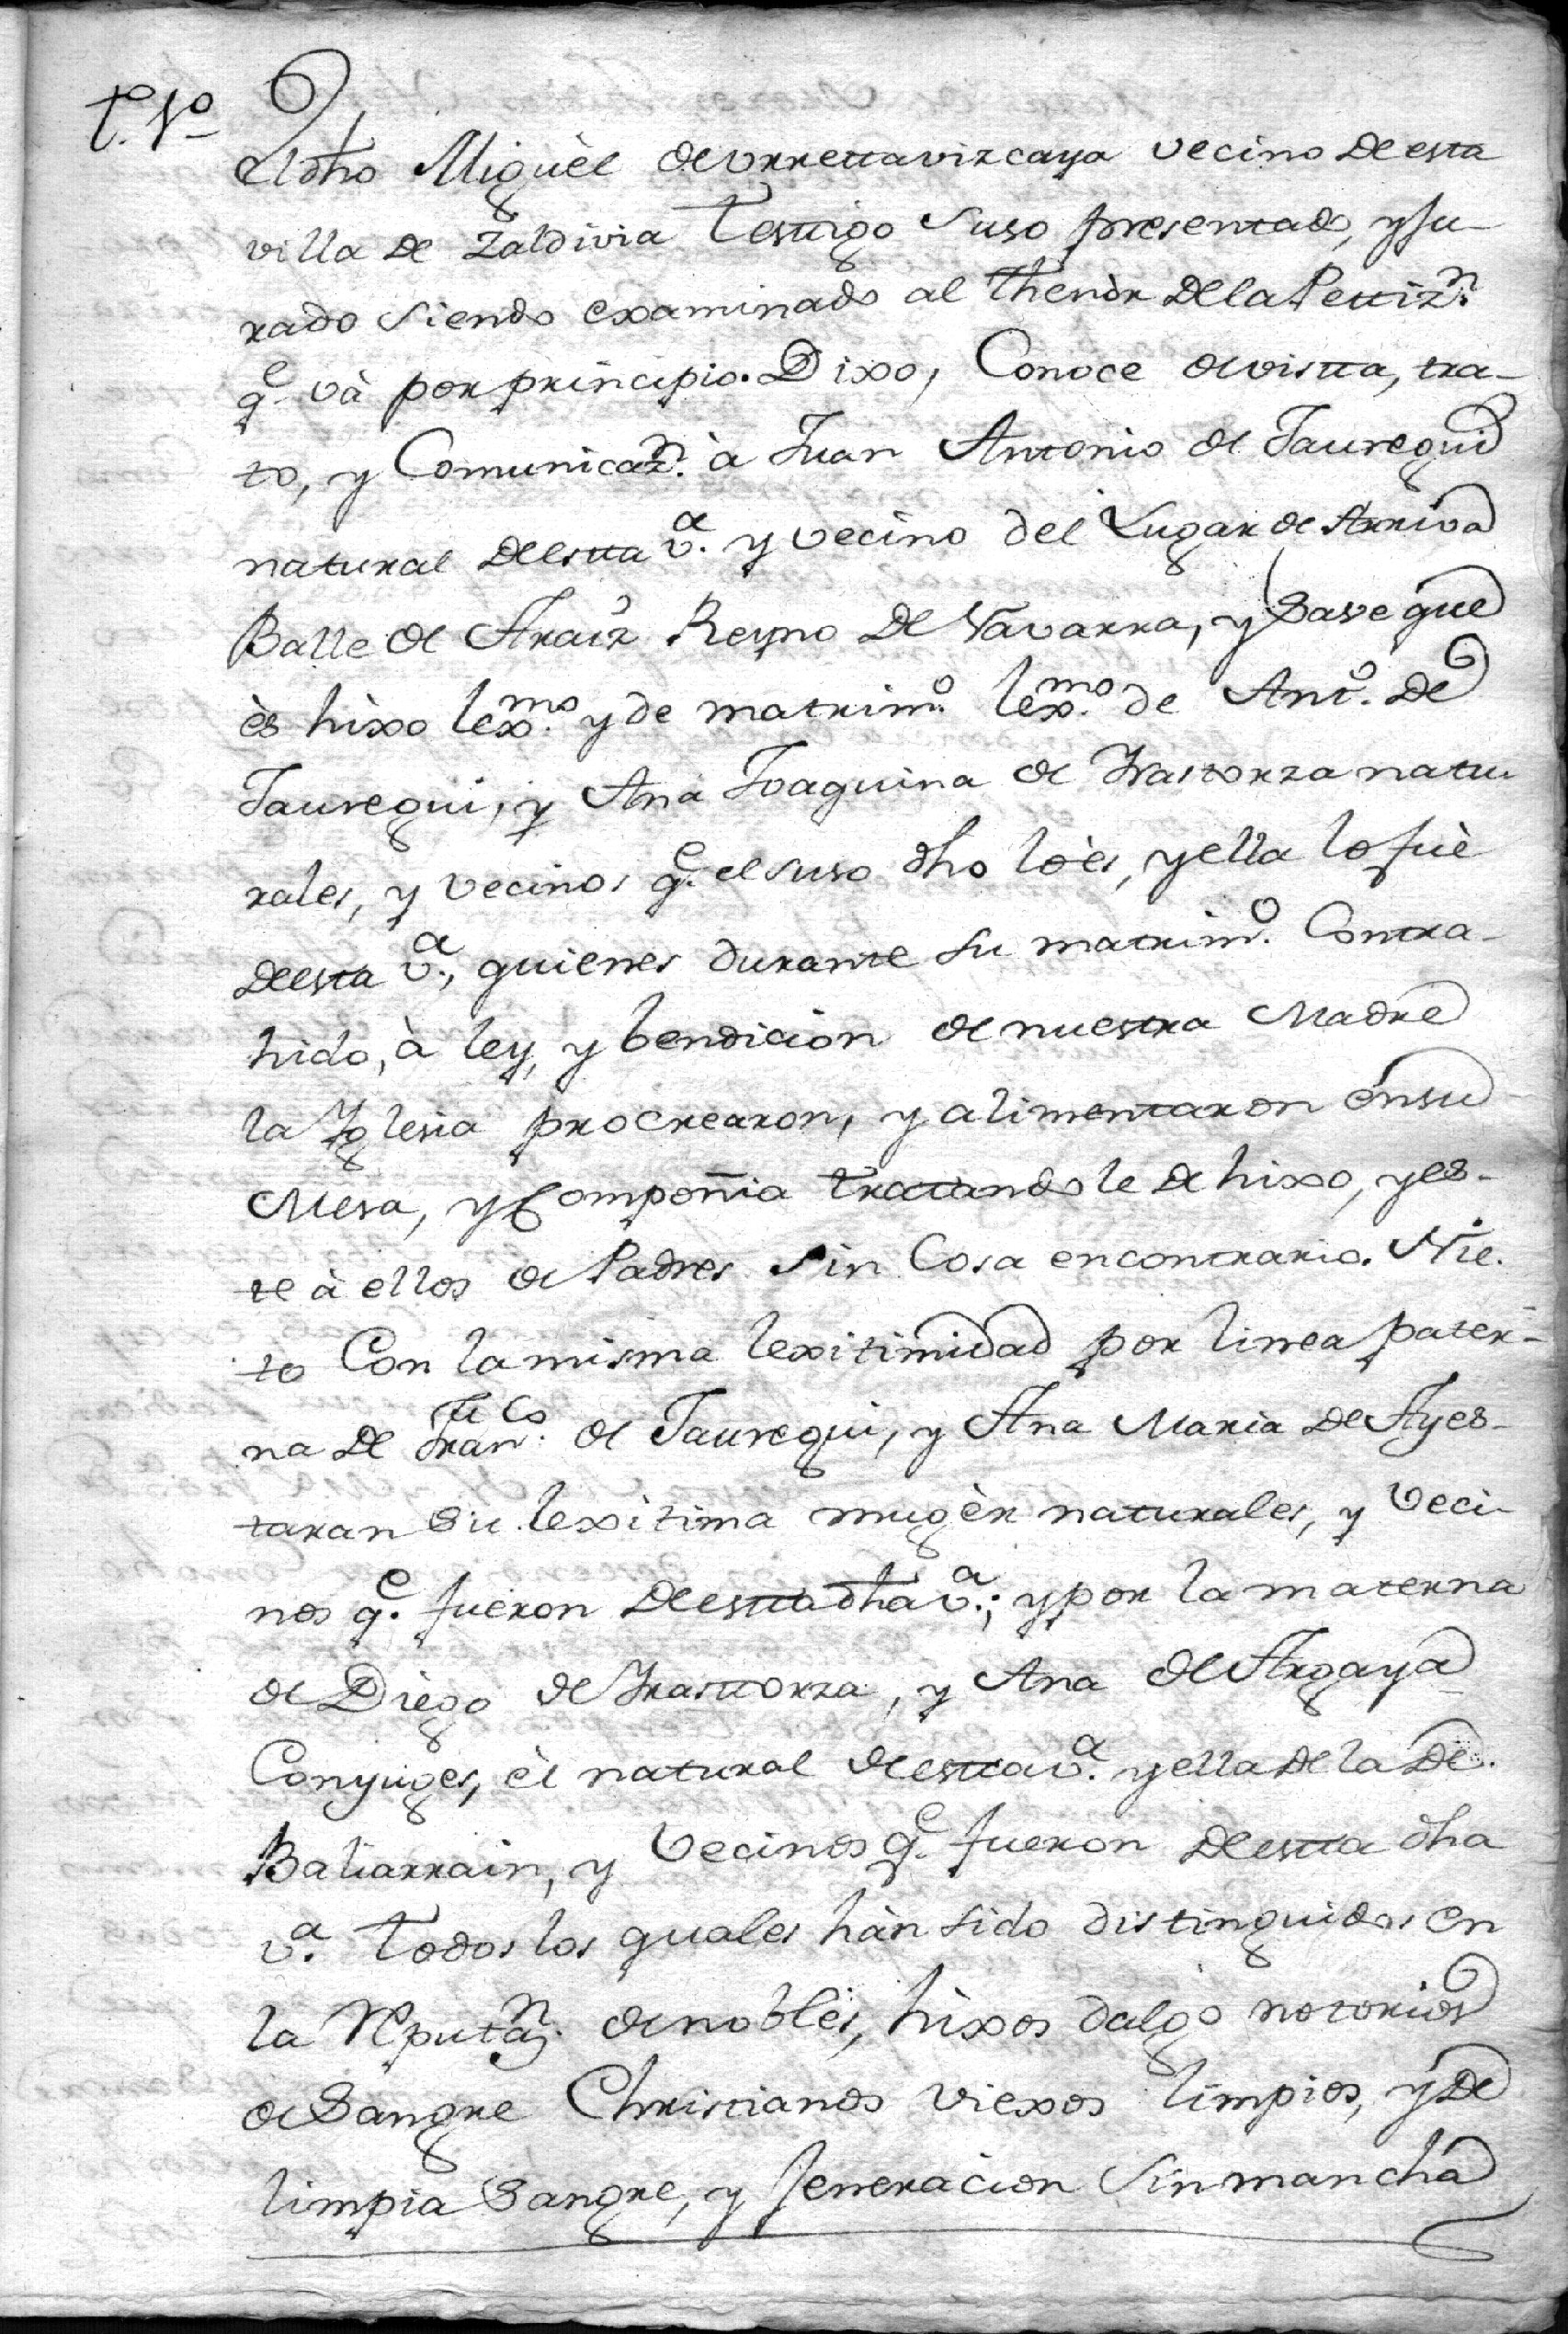 t.º 1º
El dho Miguèl de Vrrettavizcaya vecino de esta
villa de Zaldivia testtigo suso presentado, y Ju-
rado siendo examinado al thenòr de la Pettizⁿ.
q.ᵉ và por principio. Dixo, Conoce de vistta, tra-
to, y Comunicazⁿ. à Juan Antonio de Jauregui
natural de estta v.ᵃ y vecino del Lugar de Arriva
Balle de Araiz Reyno de Navarra, y save que
ès hixo lex.ᵐᵒ y de matrim.º lex.ᵐᵒ de Ant.º de
Jauregui, y Ana Joaquina de Yrastorza natu
rales, y vecinos q.ᵉ el suso dho lo ès, y ella lo fuè
de esta v.ᵃ, quienes durante su matrim.º Contra-
hido, à ley, y bendicion de nuestra Madre
la Yglesia procrearon, y alimentaron en su
Mesa, y Compoñia tratandole de hixo, y es-
te à ellos de Padres sin Cosa en contrario. Nie-
to Con la misma lexitimidad por linea pater-
na de Fran.ᶜᵒ de Jauregui, y Ana Maria de Ayes-
taran su lexitima mugèr naturales, y veci-
nos q.ᵉ fueron de estta dha v.ᵃ; y por la materna
de Diego de Yrasttorza, y Ana de Argaya
Conyuges, èl natural de estta v.ᵃ y ella de la de
Baliarrain, y vecinos q.ᵉ fueron de estta dha
v.ᵃ todos los quales hàn sido distinguidos en
la Rputazⁿ. de nobles, hixos dalgo notorios
de Sangre Christianos viexos limpios, y de
limpia Sangre, y Jeneracion sin mancha